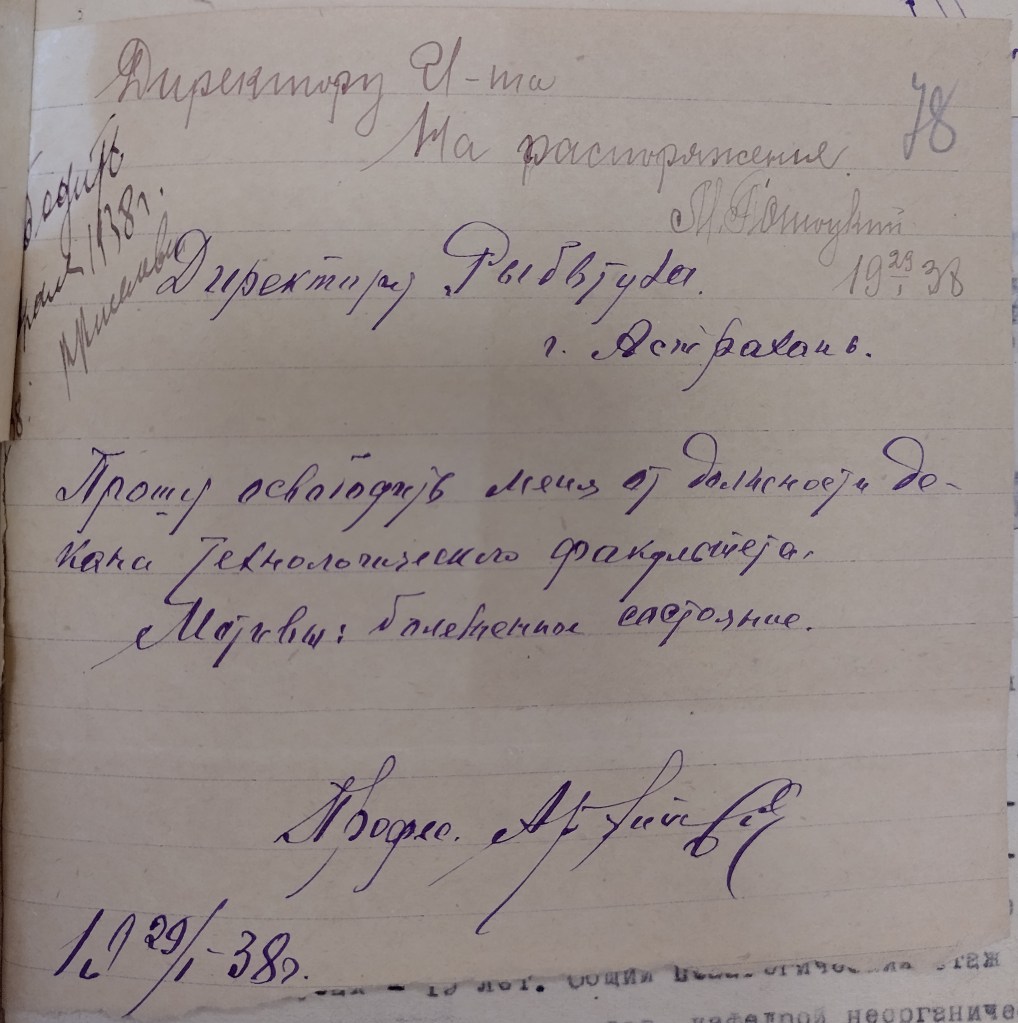 Директору И-та
На распоряжение
78
19 29/I 38
Директору Рыбвтуза
г. Астрахань.
Прошу освободить меня от должности де-
кана технологического факультета.
Мотивы: болезненное состояние.
Професс.
19 29/I-38г.
19 лет. Общий педагогический стаж
кафедрой неорганиче